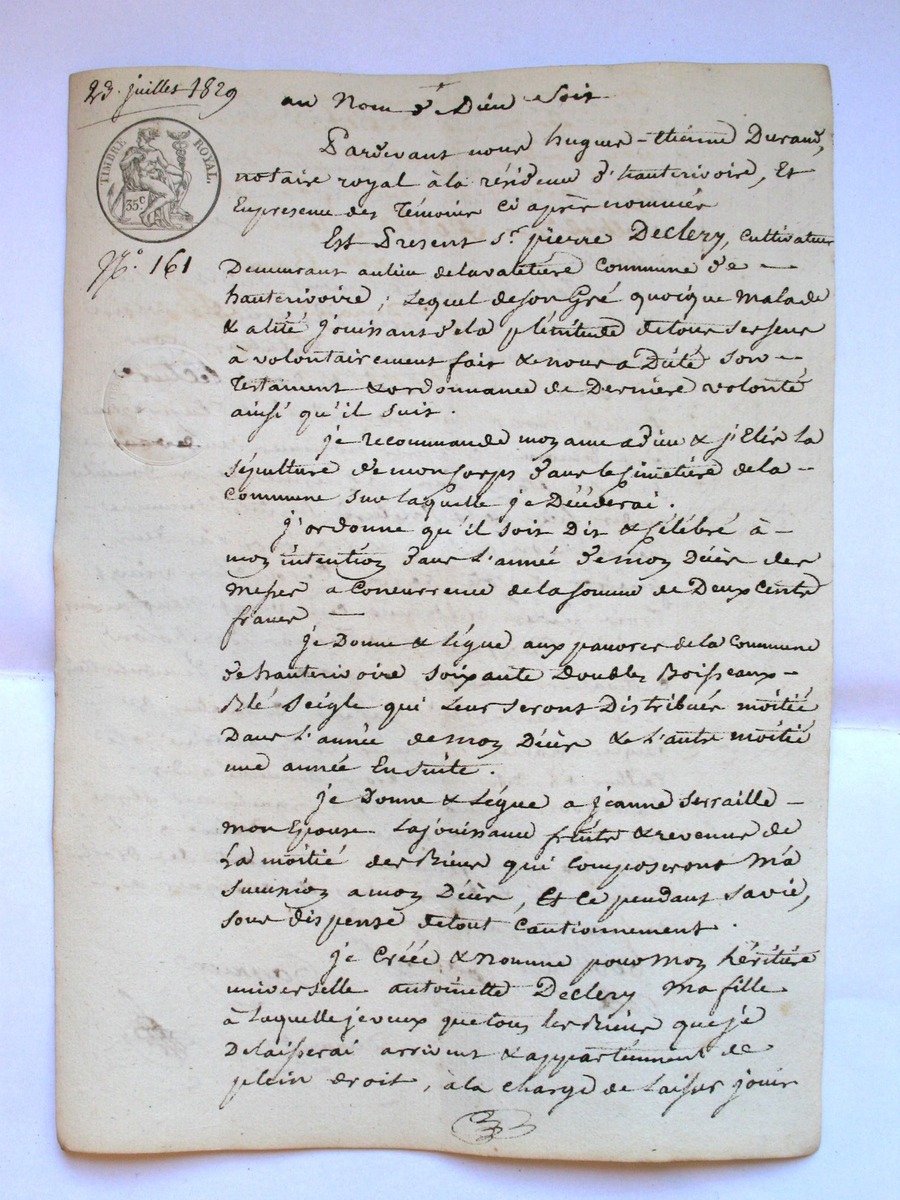 23. juillet 1829
au Nom de Dieu Soit
TIMBRE ROYAL.
35 c
N.° 161
Pardevant nous hugues-étienne Durand,
notaire royal à la résidence d'hauterivoire, Et
En presence des Témoins Ci après nommés
Est Present Sr. pierre Declery, Cultivateur
Demeurant au lieu de la valetière Commune de
hauterivoire, Lequel de son Gré quoique malade
& alité jouissant de la plénitude de tous ses sens
à volontairement fait & nous a Dicté son
Testament & ordonnance de Dernière volonté
ainsi qu'il suit.
je recommande mon ame a Dieu & j'Elis la
Sépulture de mon Corps dans le Cimetière de la
Commune sur laquelle je Décèderai.
J'ordonne qu'il soit Dit & Célébré à
mon intention dans l'année de mon Décès des
Messes a Concurrence de la somme de Deux Cents
francs
je Donne & Légue aux pauvres de la Commune
de hauterivoire Soixante Doubles Boisseaux
Blé Seigle qui Leur seront Distribués moitié
Dans l'année de mon Décès & l'autre moitié
une année Ensuite.
je Donne & Légue a jeanne Serraille
mon Epouse La jouissance fruits & revenus de
La moitié des Biens qui Composeront Ma
Succession a mon Décès, Et Ce pendant sa vie,
sous dispense de tout Cautionnement.
je Créée & nomme pour Mon héritière
universelle antoinette Declery Ma fille
à Laquelle je veux que tous les Biens que je
Delaisserai arrivent & appartiennent de
plein droit, à la charge de Laisser jouir